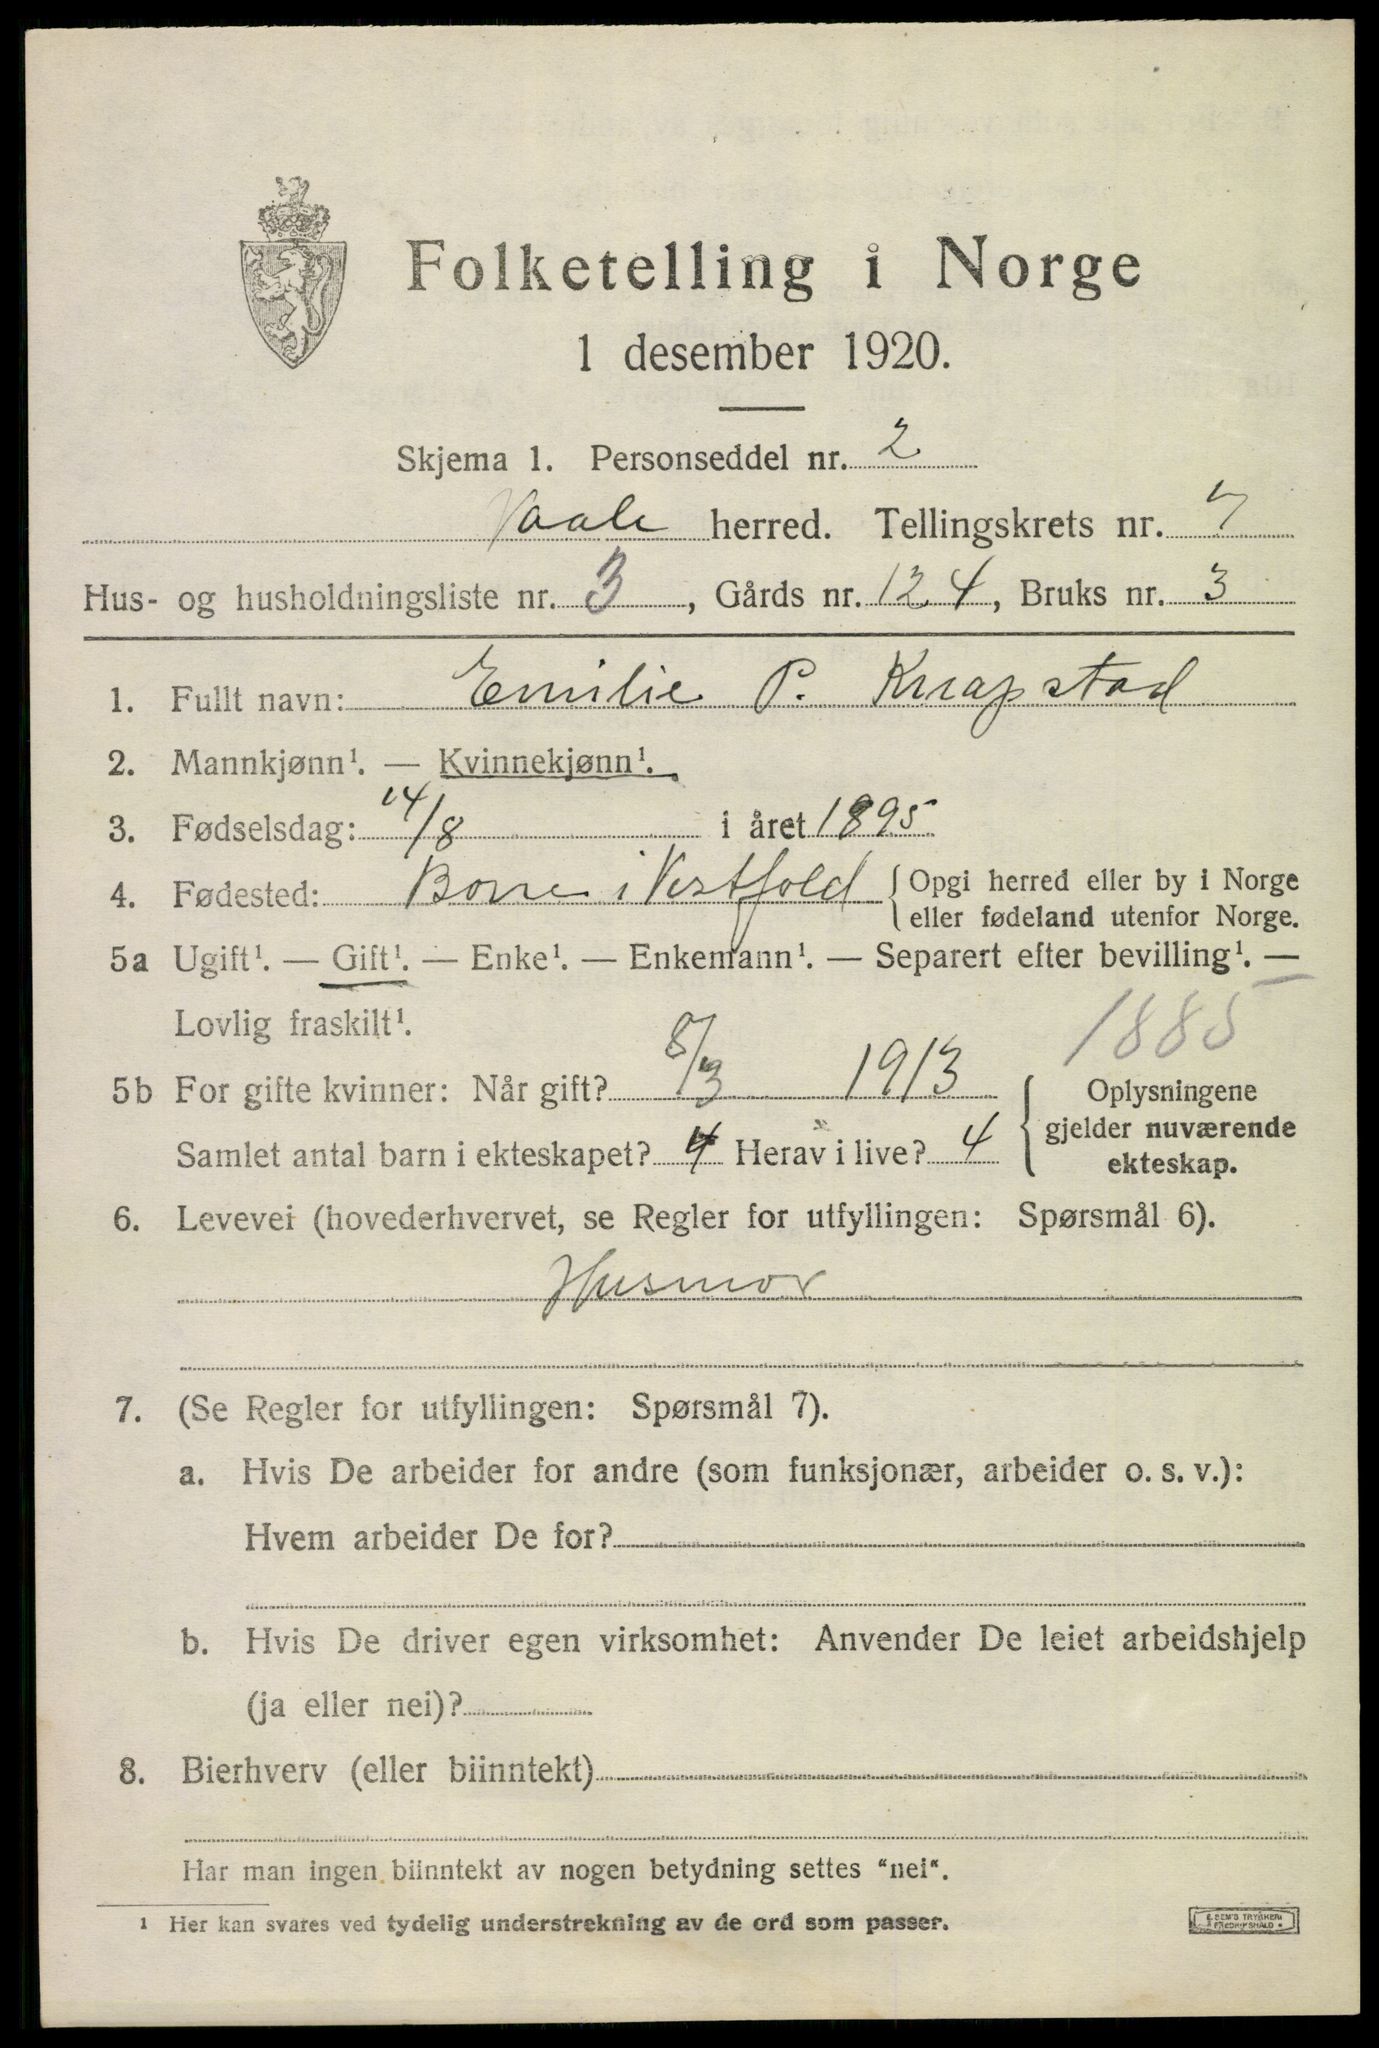 Folketelling i Norge
1 desember 1920.
Skjema 1. Personseddel nr. 2
Vaale herred. Tellingskrets nr. 7
Hus- og husholdningsliste nr. 3, Gårds nr. 124, Bruks nr. 3
1. Fullt navn: Emilie P. Knapstad
2. Mannkjønn¹. — Kvinnekjønn¹.
3. Fødselsdag: 14/8 i året 1895
4. Fødested: Borre i Vestfold { Opgi herred eller by i Norge
eller fødeland utenfor Norge.
5a Ugift¹. — Gift¹. — Enke¹. — Enkemann¹. — Separert efter bevilling¹. —
Lovlig fraskilt¹.
1885
5b For gifte kvinner: Når gift? 8/3 1913
Samlet antal barn i ekteskapet? 4 Herav i live? 4
{ Oplysningene
gjelder nuværende
ekteskap.
6. Levevei (hovederhvervet, se Regler for utfyllingen: Spørsmål 6).
Husmor
7. (Se Regler for utfyllingen: Spørsmål 7).
a. Hvis De arbeider for andre (som funksjonær, arbeider o. s. v.):
Hvem arbeider De for?
b. Hvis De driver egen virksomhet: Anvender De leiet arbeidshjelp
(ja eller nei)?
8. Bierhverv (eller biinntekt)
Har man ingen biinntekt av nogen betydning settes "nei".
¹ Her kan svares ved tydelig understrekning av de ord som passer.
E. SEM'S TRYKKERI
FREDRIKSHALD